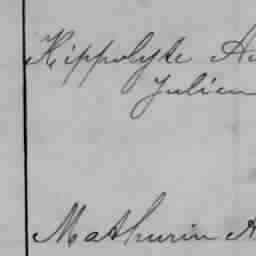 Hippolyte
Julien
Mathurin